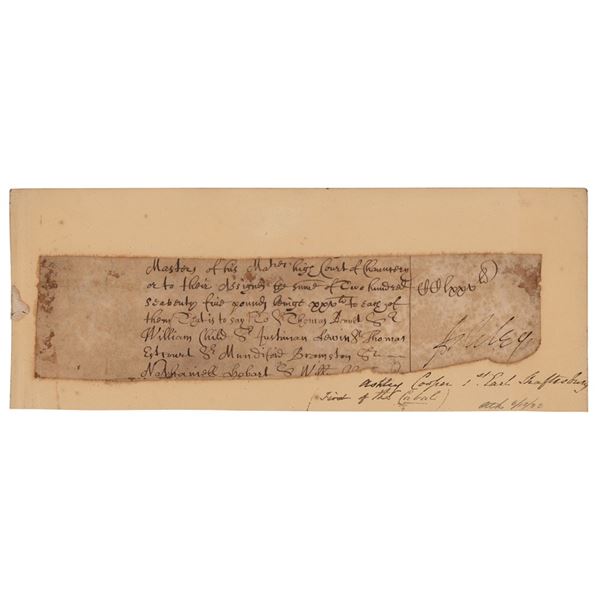 Masters of his Maties high Court of Chauncery
or to their Assignes the sume of Two hundred
seaventy five pounds being xxvli to each of
them That is to say To Sr Thomas Sr
William Child Sr Justinian Lewin Sr Thomas
Estcourt Sr Mundiford Bramston Sr
Nathaniell Hobart Sr Will
CClxxvli
Ashley
Ashley Cooper 1st Earl Shaftesbury
(First of the Cabal)